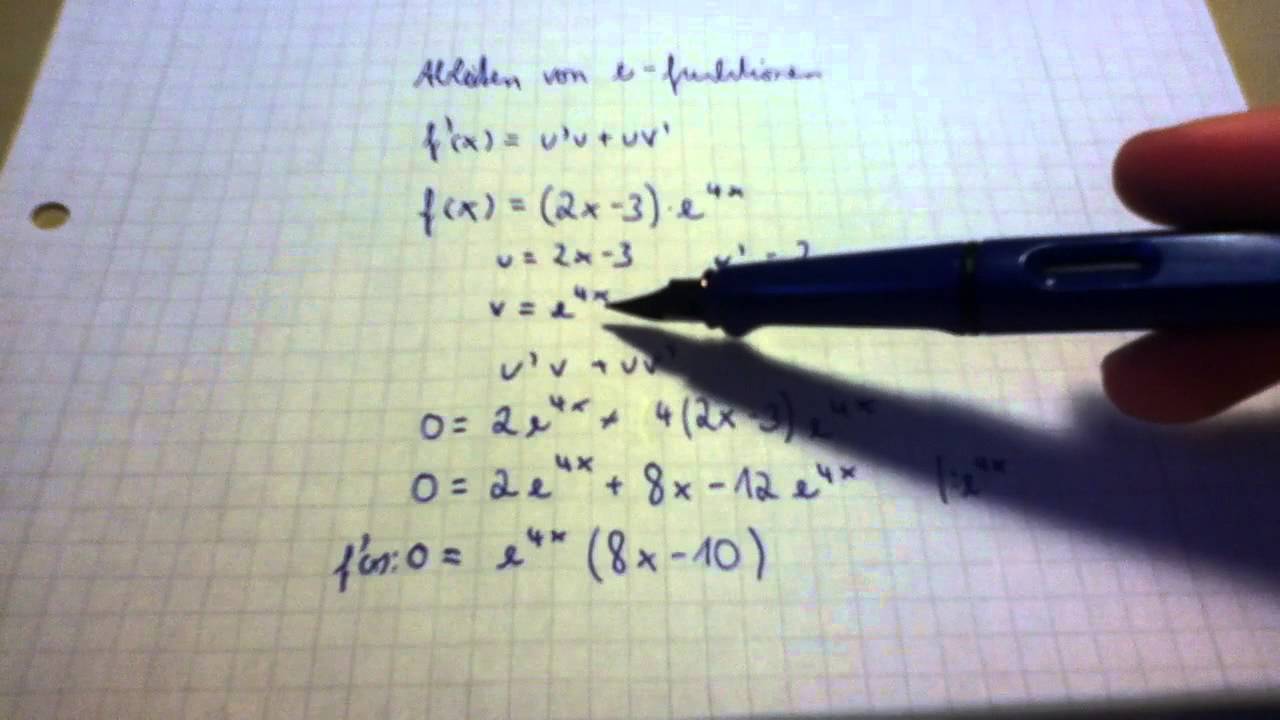 Ableiten von e-funktionen
f'(x) = u'v + uv'
f(x) = (2x-3)·e^4x
u = 2x-3 u' = 2
v = e^4x
u'v + uv'
0 = 2e^4x + 4(2x-3) e^4x
0 = 2e^4x + 8x - 12e^4x |:e^4x
f'(x): 0 = e^4x (8x-10)